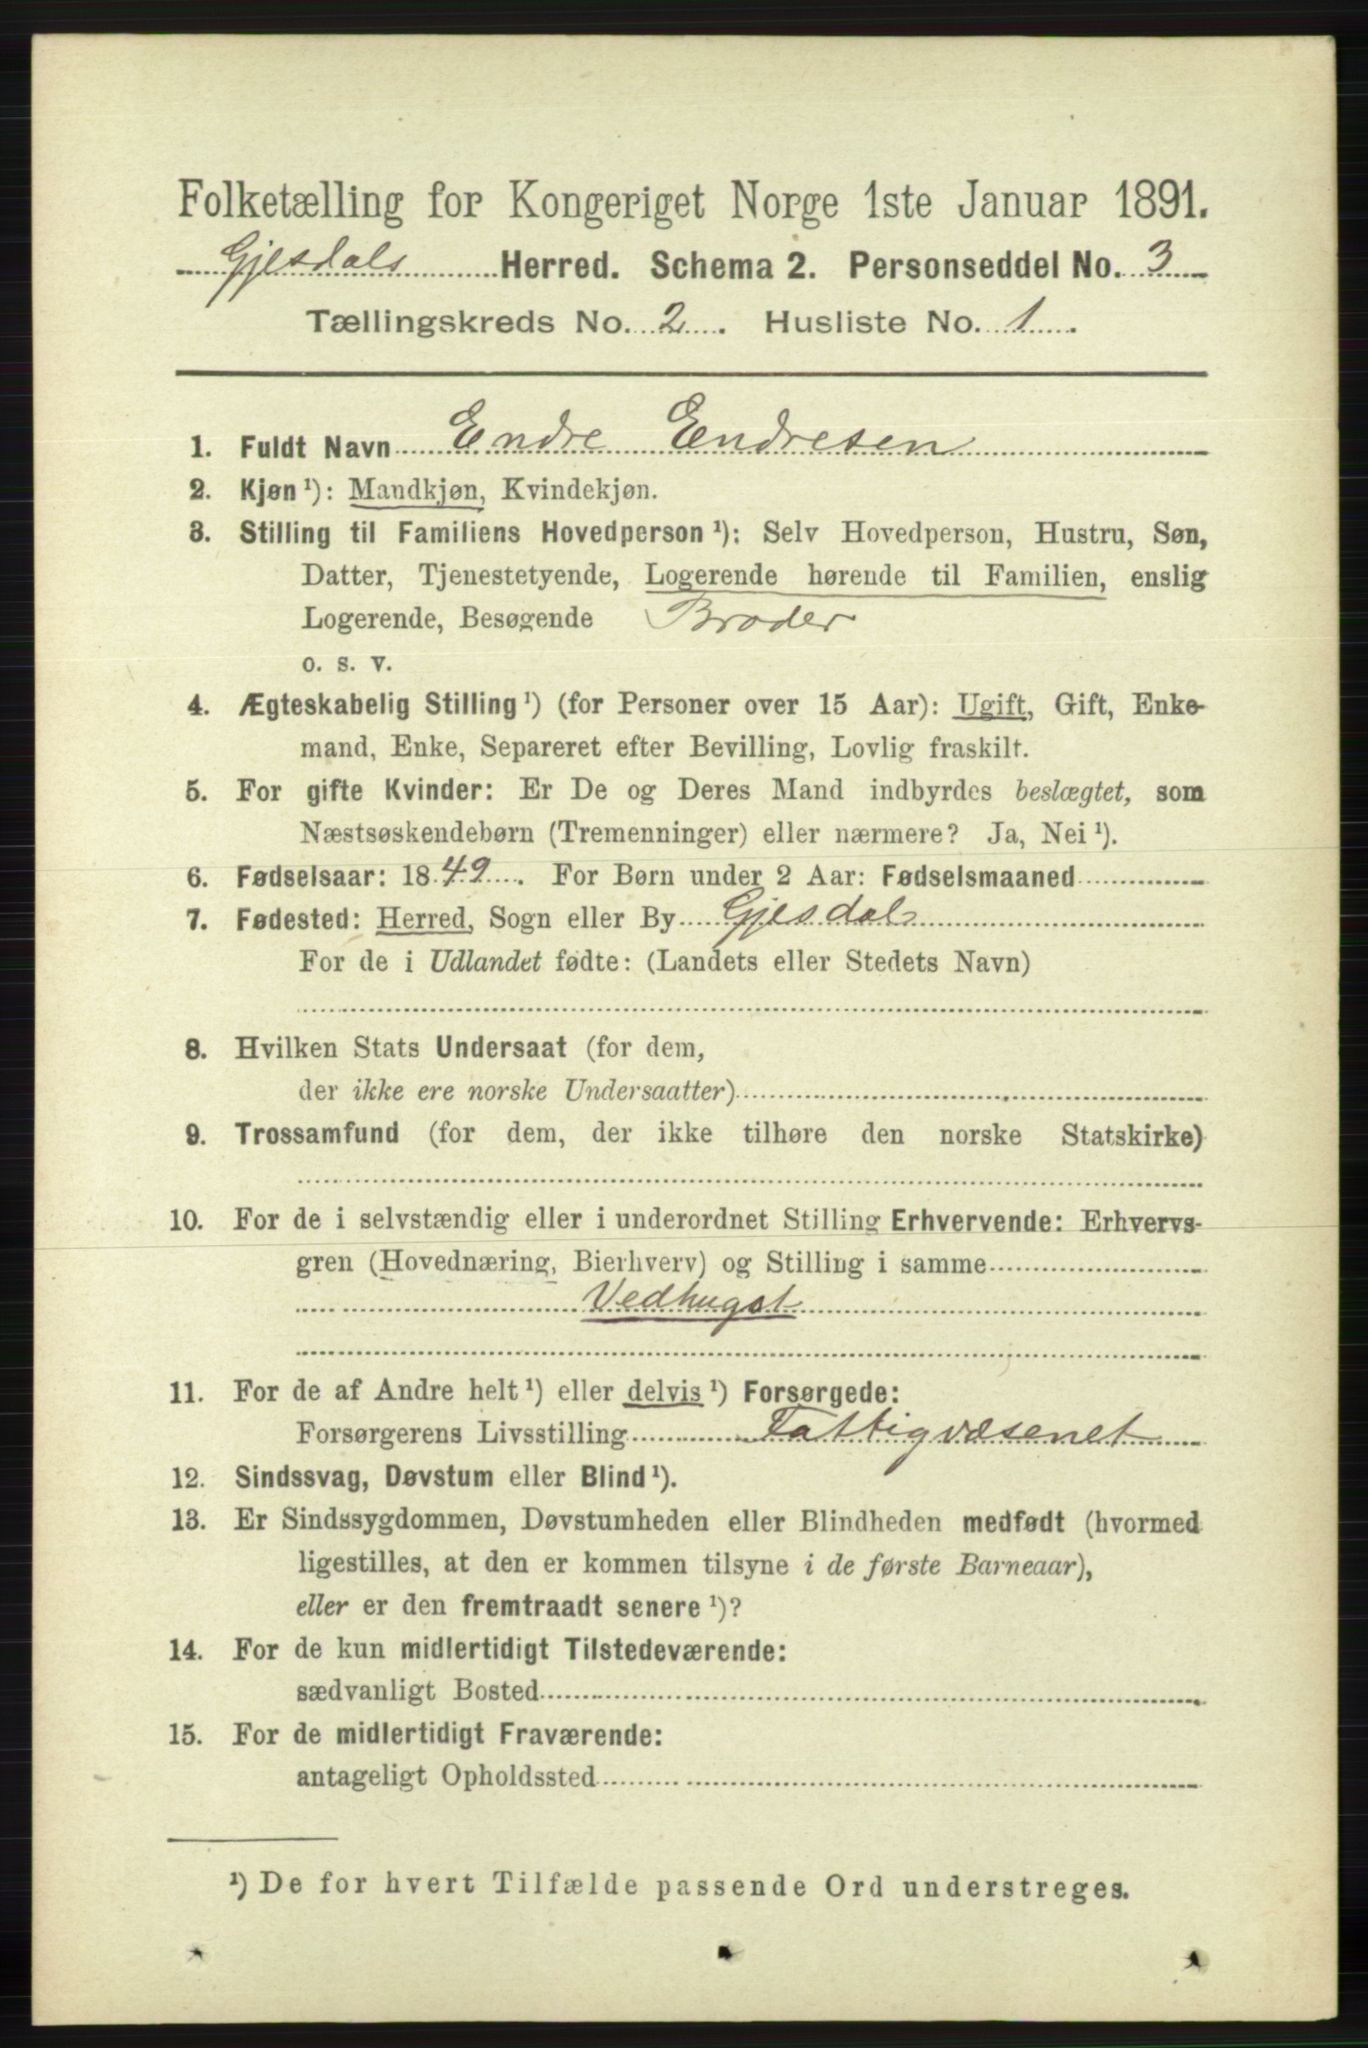 Folketælling for Kongeriget Norge 1ste Januar 1891.
Gjesdals Herred. Schema 2. Personseddel No. 3
Tællingskreds No. 2. Husliste No. 1.
1. Fuldt Navn Endre Endresen
2. Kjøn ¹): Mandkjøn, Kvindekjøn.
3. Stilling til Familiens Hovedperson ¹): Selv Hovedperson, Hustru, Søn,
Datter, Tjenestetyende, Logerende hørende til Familien, enslig
Logerende, Besøgende Broder
o. s. v.
4. Ægteskabelig Stilling ¹) (for Personer over 15 Aar): Ugift, Gift, Enke-
mand, Enke, Separeret efter Bevilling, Lovlig fraskilt.
5. For gifte Kvinder: Er De og Deres Mand indbyrdes beslægtet, som
Næstsøskendebørn (Tremenninger) eller nærmere? Ja, Nei ¹).
6. Fødselsaar: 1849. For Børn under 2 Aar: Fødselsmaaned
7. Fødested: Herred, Sogn eller By Gjesdal
For de i Udlandet fødte: (Landets eller Stedets Navn)
8. Hvilken Stats Undersaat (for dem,
der ikke ere norske Undersaatter)
9. Trossamfund (for dem, der ikke tilhøre den norske Statskirke)
10. For de i selvstændig eller i underordnet Stilling Erhvervende: Erhvervs-
gren (Hovednæring, Bierhverv) og Stilling i samme
Vedhugst
11. For de af Andre helt ¹) eller delvis ¹) Forsørgede:
Forsørgerens Livsstilling Fattigvæsenet
12. Sindssvag, Døvstum eller Blind ¹).
13. Er Sindssygdommen, Døvstumheden eller Blindheden medfødt (hvormed
ligestilles, at den er kommen tilsyne i de første Barneaar),
eller er den fremtraadt senere ¹)?
14. For de kun midlertidigt Tilstedeværende:
sædvanligt Bosted
15. For de midlertidigt Fraværende:
antageligt Opholdssted
¹) De for hvert Tilfælde passende Ord understreges.